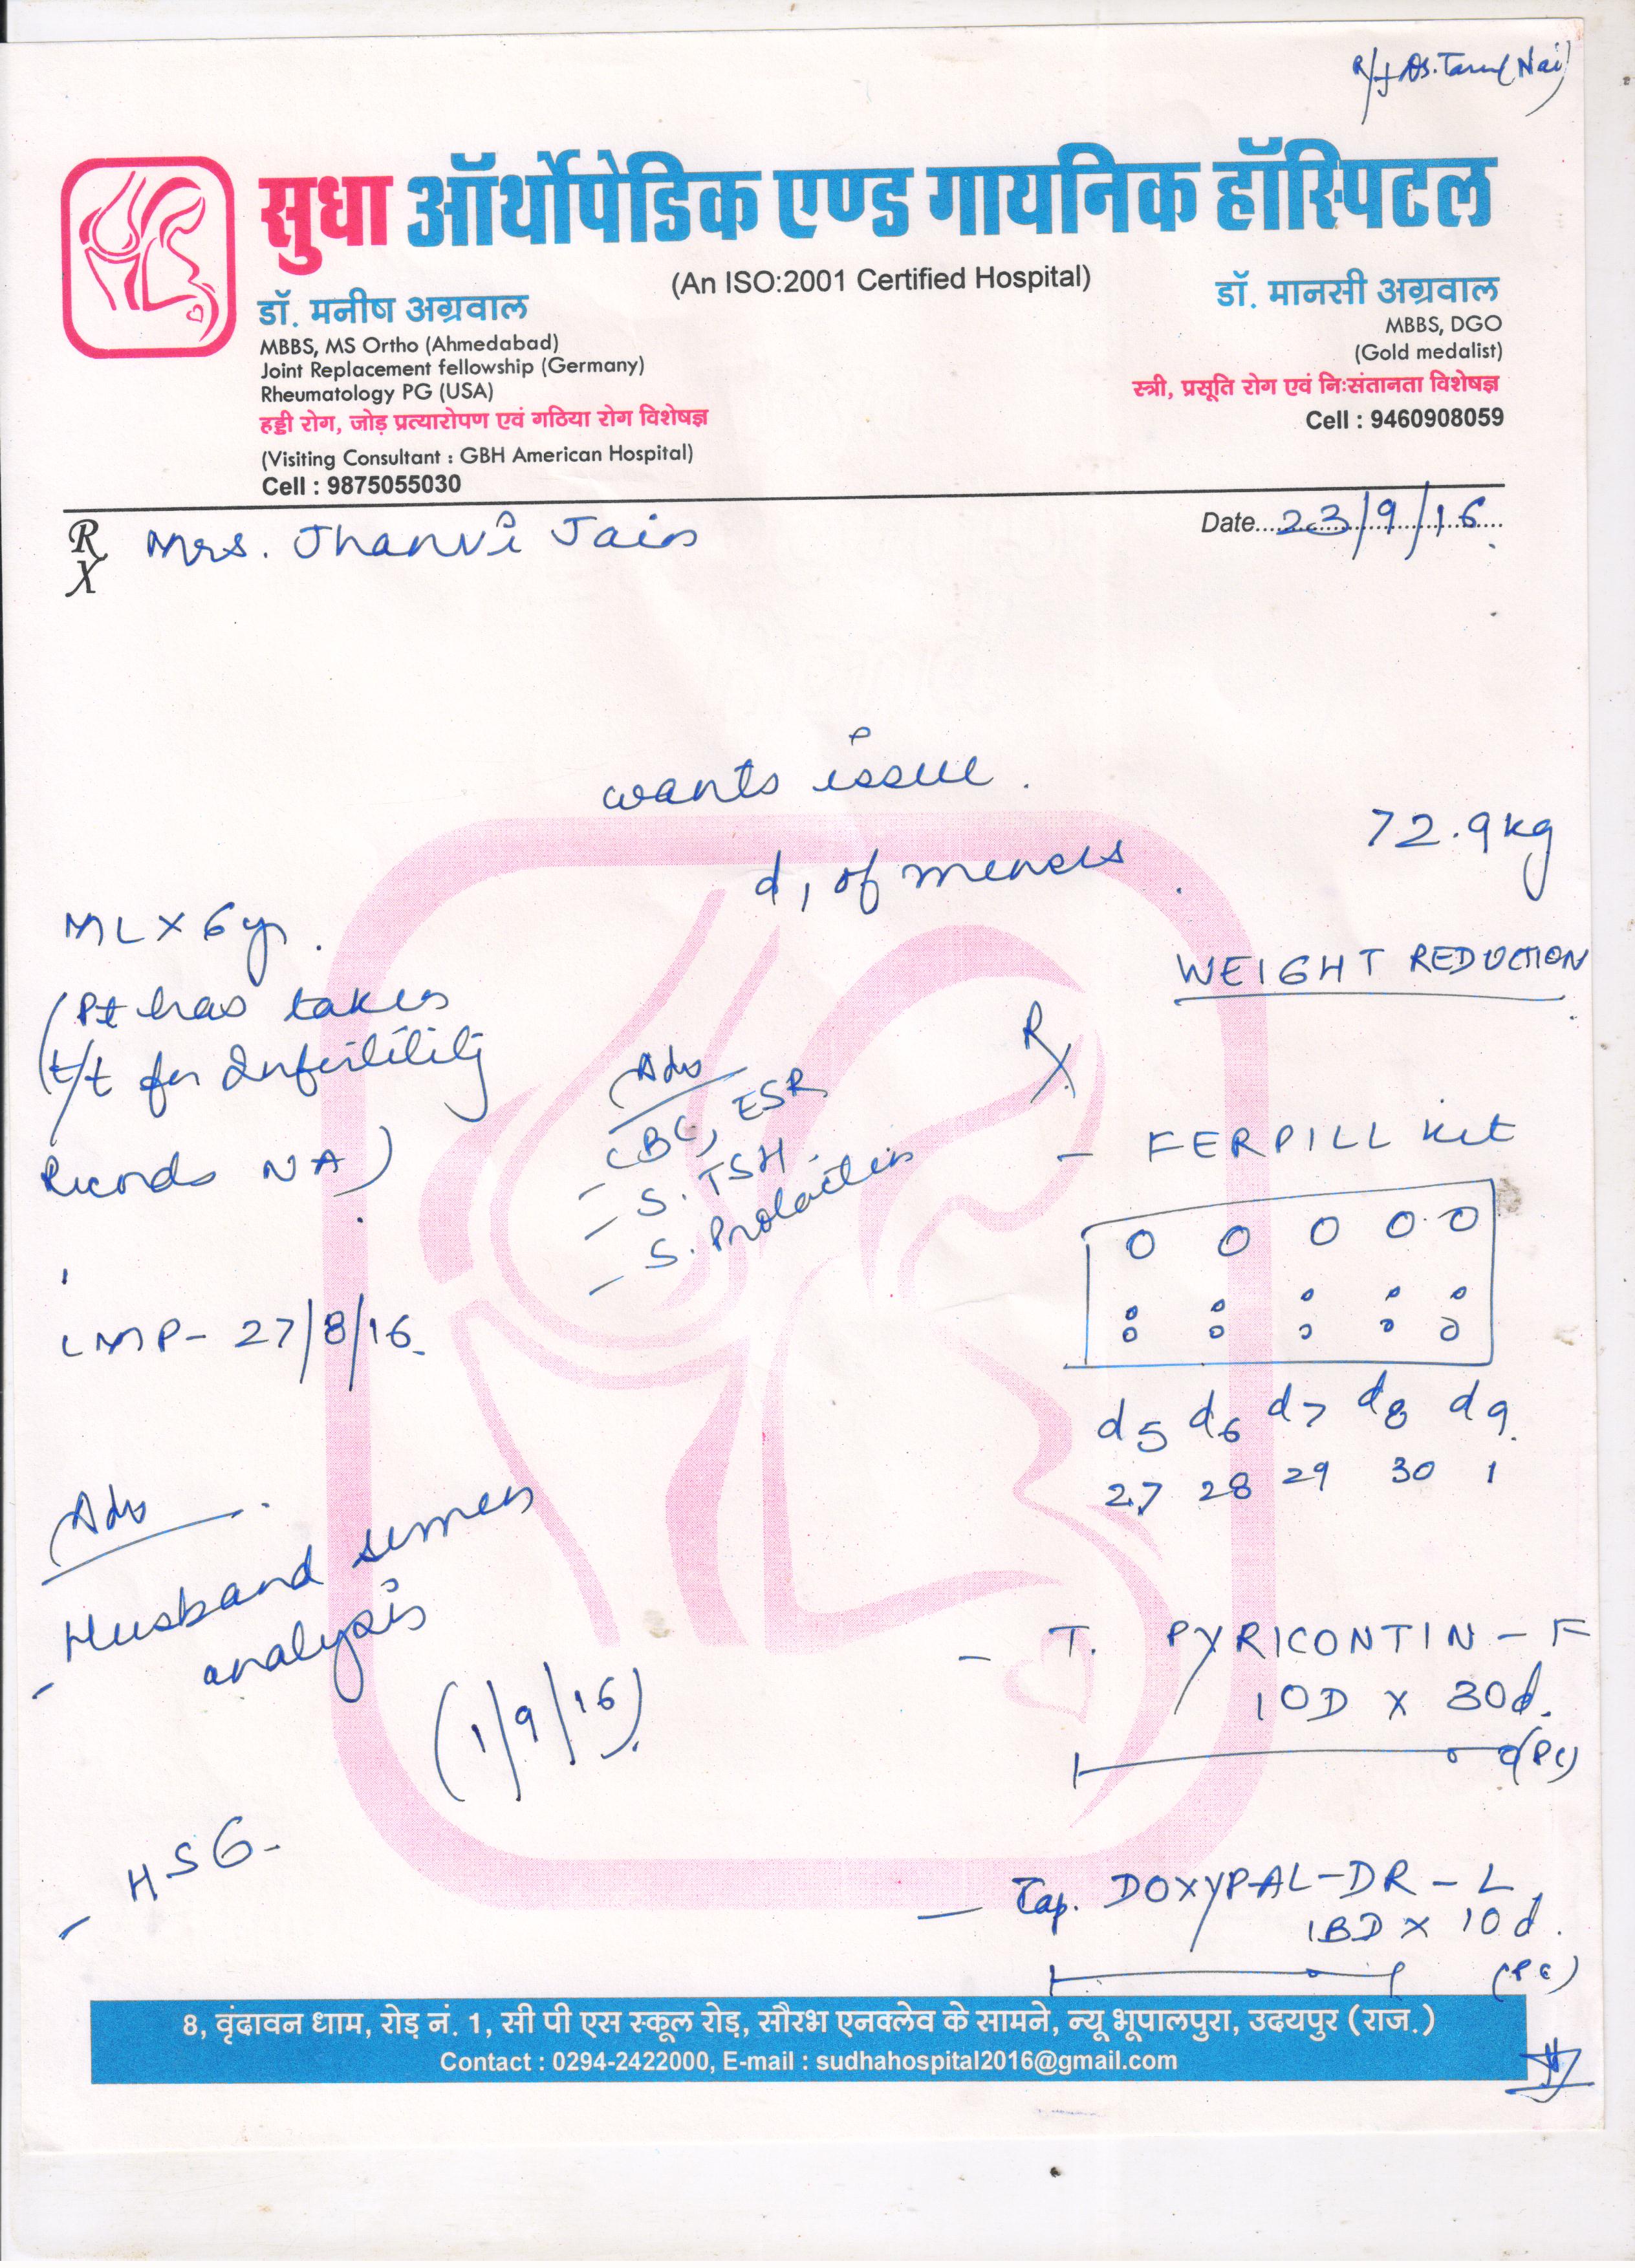 R/f Ds. Tarul (Nai)
सुधा ऑर्थोपेडिक एण्ड गायनिक हॉस्पिटल
(An ISO:2001 Certified Hospital)
डॉ. मनीष अग्रवाल
MBBS, MS Ortho (Ahmedabad)
Joint Replacement fellowship (Germany)
Rheumatology PG (USA)
हड्डी रोग, जोड़ प्रत्यारोपण एवं गठिया रोग विशेषज्ञ
(Visiting Consultant : GBH American Hospital)
Cell : 9875055030
डॉ. मानसी अग्रवाल
MBBS, DGO
(Gold medalist)
स्त्री, प्रसूति रोग एवं निःसंतानता विशेषज्ञ
Cell : 9460908059
Rx Mrs. Jhanvi Jain
Date...23/9/16
wants issue.
d1 of menses.
72.9 kg
WEIGHT REDUCTION
ML x 6 yr.
(Pt has taken
t/t for Infertility
Records NA).
LMP- 27/8/16.
Adv
- CBC, ESR
- S. TSH.
- S. Prolactin
Rx
- FERPILL kit
d5 d6 d7 d8 d9.
27 28 29 30 1
Adv
- Husband semen
analysis
(1/9/16).
- HSG-
- T. PYRICONTIN - F
1OD x 30d.
(PC)
- Cap. DOXYPAL-DR-L
1BD x 10d.
(PC)
8, वृंदावन धाम, रोड़ नं. 1, सी पी एस स्कूल रोड़, सौरभ एनक्लेव के सामने, न्यू भूपालपुरा, उदयपुर (राज.)
Contact : 0294-2422000, E-mail : sudhahospital2016@gmail.com